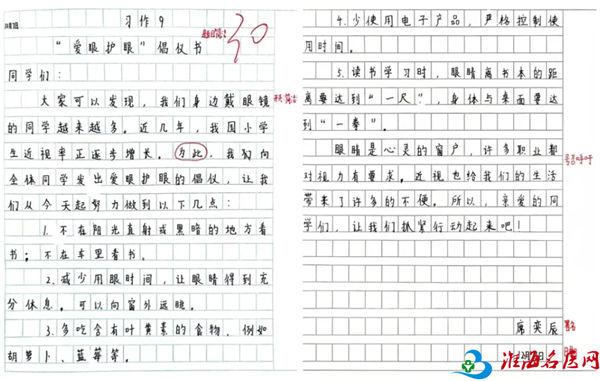 习作9
"爱眼护眼"倡仪书
同学们:
大家可以发现,我们身边戴眼镜
的同学越来越多。近几年,我国小学
生近视率正逐步增长。为此,我们向
全体同学发出爱眼护眼的倡仪,让我
们从今天起努力做到以下几点:
1.不在阳光直射或黑暗的地方看
书;不在车里看书。
2.减少用眼时间,让眼睛得到充
分休息。可以向窗外远眺。
3.多吃含有叶黄素的食物,例如
胡萝卜、蓝莓等。
4.少使用电子产品,严格控制使
用时间。
5.读书学习时,眼睛离书本的距
离要达到"一尺",身体与桌面要达
到"一拳"。
眼睛是心灵的窗户,许多职业都
号召呼吁
对视力有要求。近视也给我们的生活
带来了许多的不便。所以,亲爱的同
学们,让我们抓紧行动起来吧!
席奕辰
署名
日期
淮海名医网